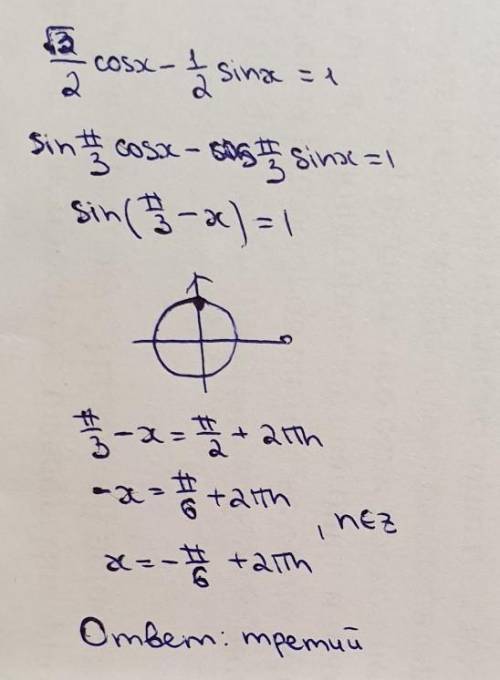 √3/2 cosx - 1/2 sinx = 1
sin π/3 cosx - cos π/3 sinx = 1
sin(π/3 - x) = 1
π/3 - x = π/2 + 2πn
-x = π/6 + 2πn
x = -π/6 + 2πn , n∈z
Ответ: третий